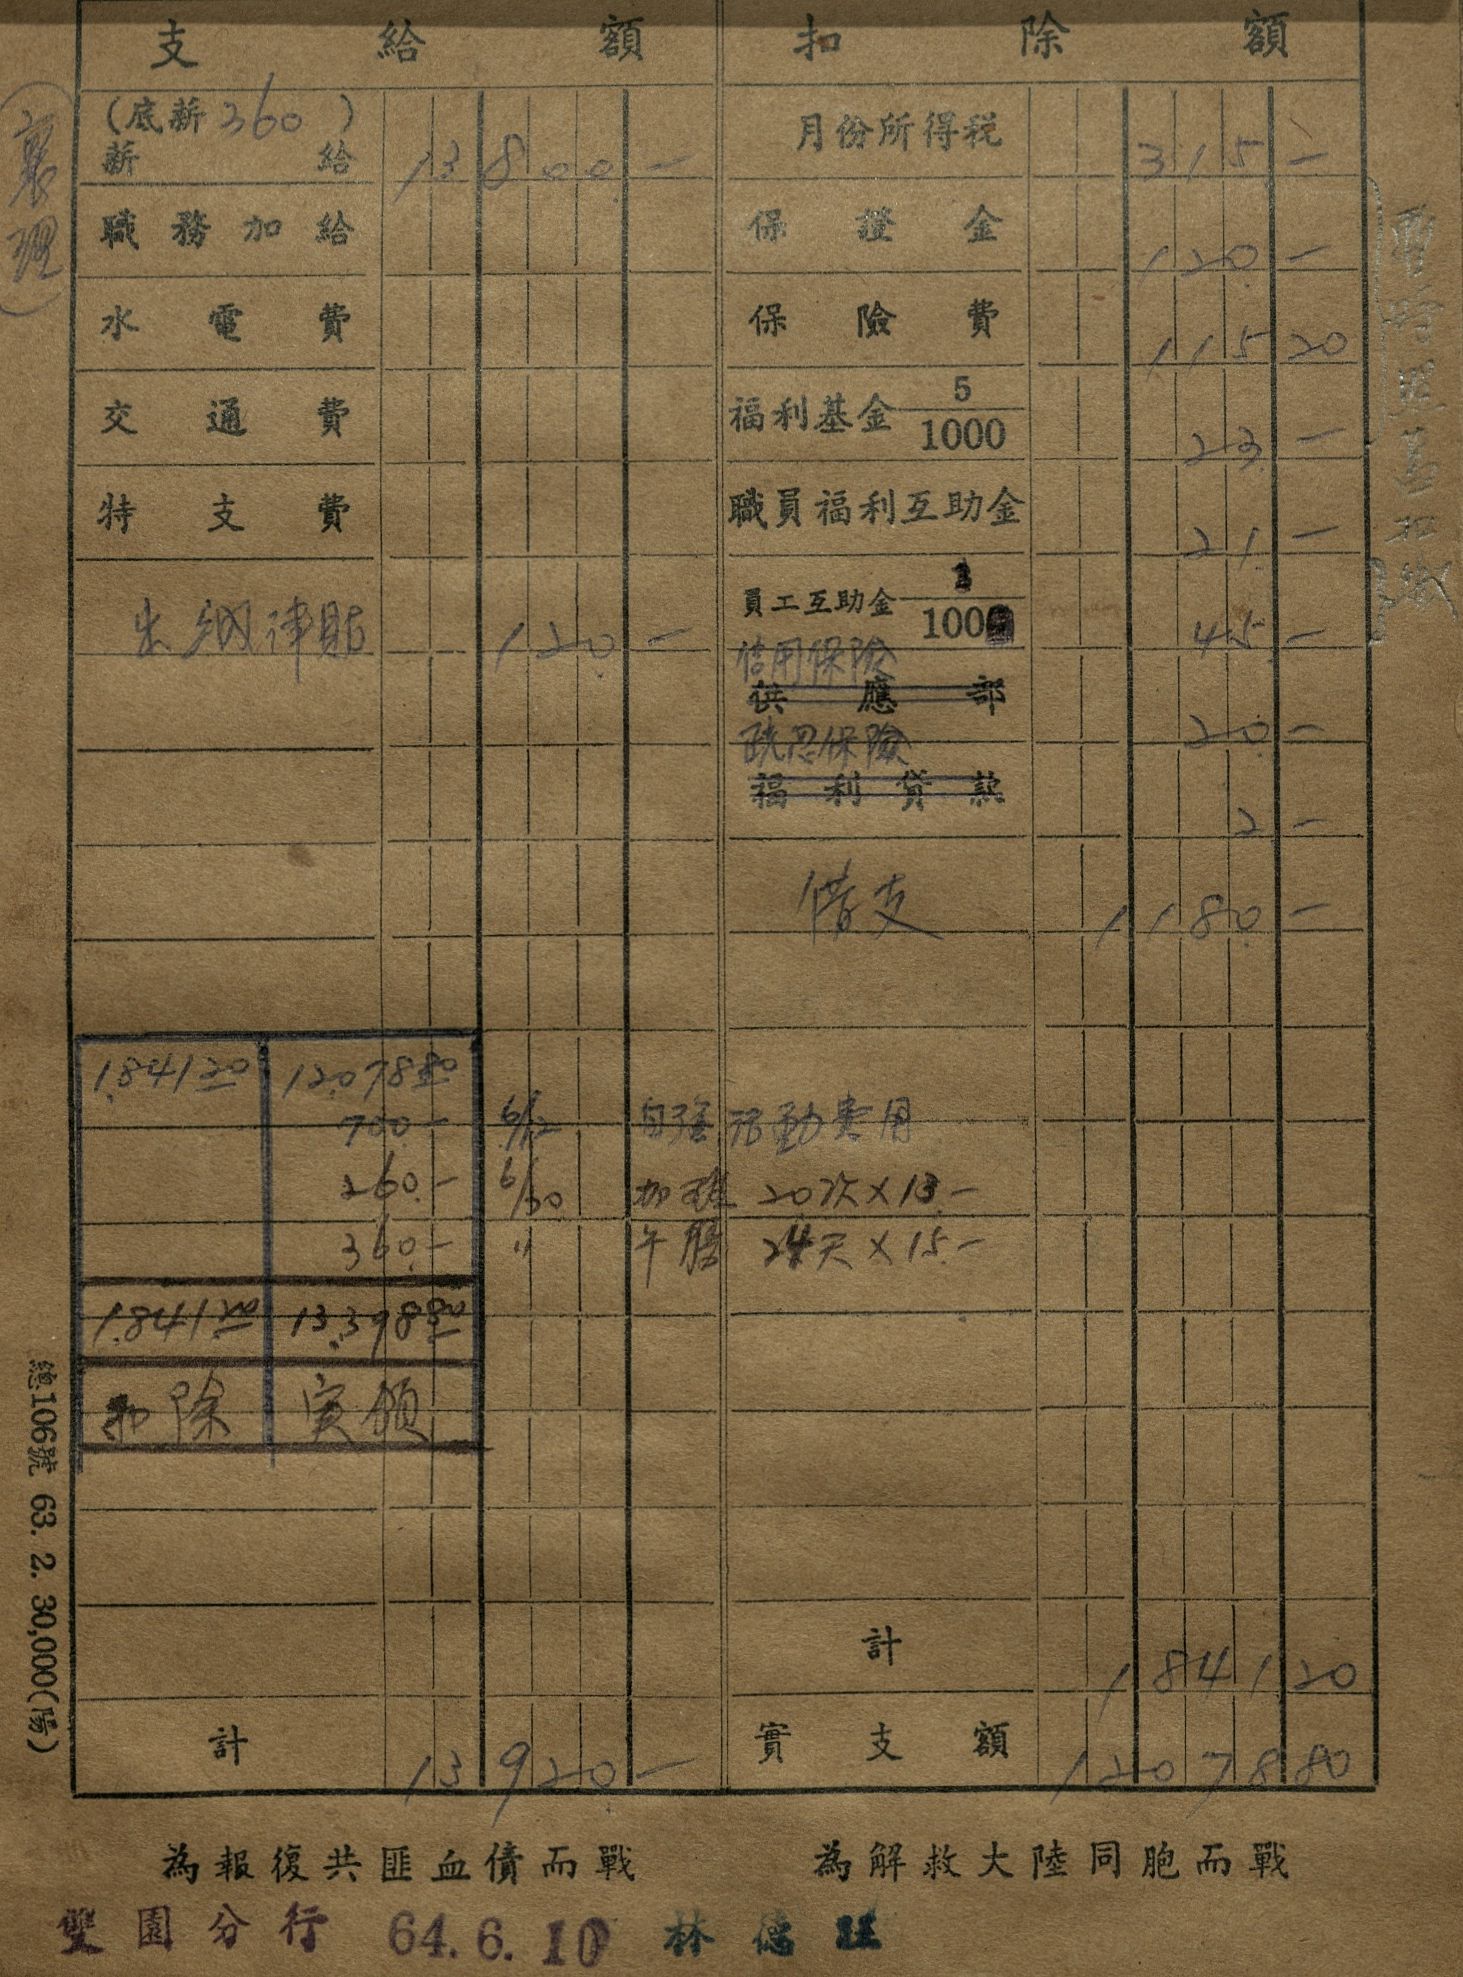 支給額 扣除額
(底薪360)
薪給 13800—
月份所得稅 315—
職務加給
保證金 120—
水電費
保險費 11520
交通費
福利基金 5/1000 23—
特支費
職員福利互助金 21—
出納津貼 120—
員工互助金 3/1000 45—
信用保險
供應部 20—
疏忽保險
福利貸款 2—
借支 1180—
1,84120 12,07880
700— 6/12 自強活動費用
260— 6/30 加班 20次×13—
360— 〃 午膳 24天×15—
1,84120 13,39880
扣除 实領
計 184120
計 13920—
實支額 1207880
(襄理)
暫時照舊扣繳
總106號 63. 2. 30,000(僑)
為報復共匪血債而戰 為解救大陸同胞而戰
雙園分行 64.6.10 林德旺